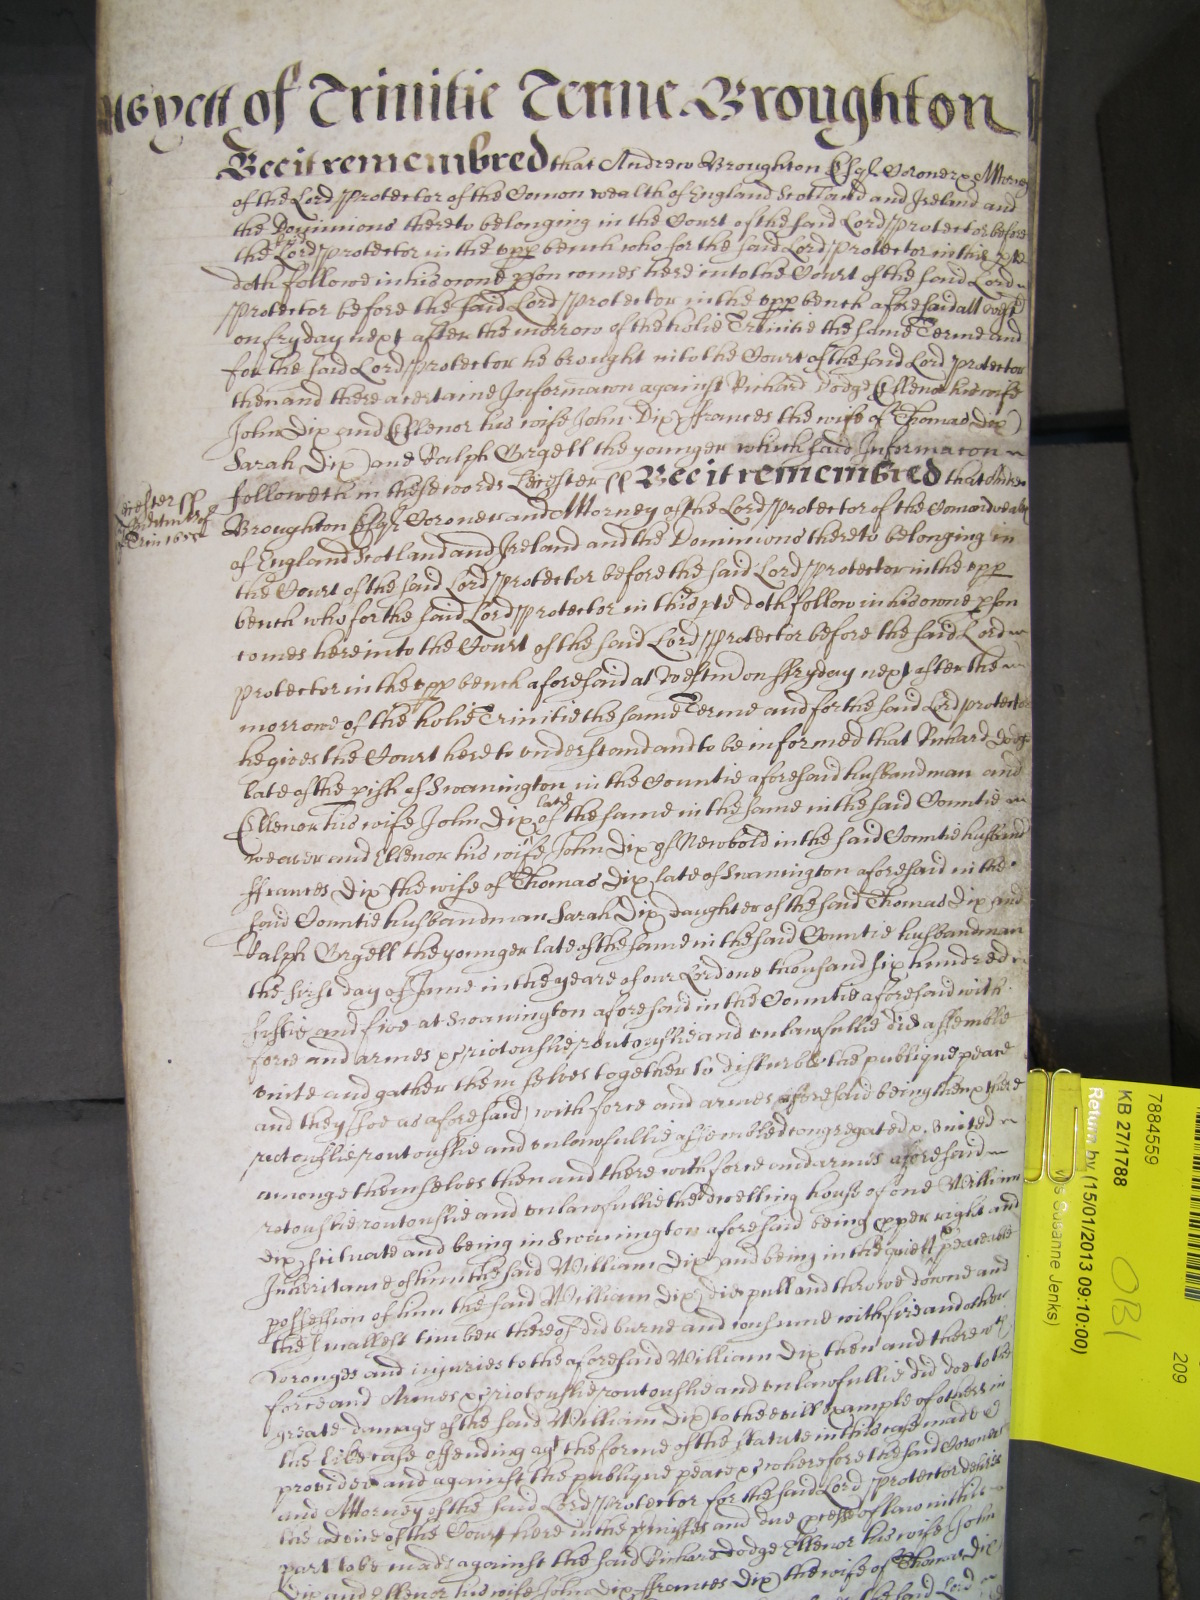 as yett of Trinitie Terme Broughton
Bee it remembred that Andrew Broughton Esqr Coroner & Attorney
of the Lord Protector of the Comon wealth of England Scotland and Ireland and
the Dominions thereto belonging in the Court of the said Lord Protector before
the said Lord Protector in the upp bench who for the said Lord Protector in this pte
doth followe in his owne pson comes here into the Court of the said Lord
Protector before the said Lord Protector in the upp bench aforesaid att Westmr
on fryday next after the morrow of the holie Trinitie the same Terme and
for the said Lord Protector he brought into the Court of the said Lord Protector
then and there a certaine Informacon against Richard Dodge Ellenor his wife
John Dix and Ellenor his wife John Dix ffrances the wife of Thomas Dix
Sarah Dix and Ralph Orgell the younger which said Informacon
followeth in these words Leicester ss Bee it remembred that Andrew
Leicester ss
Trin 1655
Broughton Esqr Coroner and Attorney of the Lord Protector of the Comonwealth
of England Scotland and Ireland and the Dominions thereto belonging in
the Court of the said Lord Protector before the said Lord Protector in the upp
bench who for the said Lord Protector in this pte doth follow in his owne pson
comes here into the Court of the said Lord Protector before the said Lord
Protector in the upp bench aforesaid at Westmr on ffryday next after the
morrowe of the holie Trinitie the same Terme and for the said Lord Protector
he gives the Court here to understand and to be informed that Richard Dodge
late of the pish of Swanington in the Countie aforesaid husbandman and
Ellenor his wife John Dix late of the same in the same in the said Countie
weaver and Ellenor his wife John Dix of Newbold in the said Countie husband
ffrances Dix the wife of Thomas Dix late of Swanington aforesaid in the
said Countie husbandman Sarah Dix daughter of the said Thomas Dix and
Ralph Orgell the younger late of the same in the said Countie husbandman
the first day of June in the yeare of our Lord one thousand six hundred
fiftie and five at Swanington aforesaid in the Countie aforesaid with
force and armes &c riotouslie routouslie and unlawfullie did assemble
unite and gather themselves together to disturbe the publique peace
and they soe as aforesaid with force and armes aforesaid being then & there
riotouslie routouslie and unlawfullie assembled congregated & united
amongs themselves then and there with force and armes aforesaid
riotouslie routouslie and unlawfullie the dwelling house of one William
Dix scituate and being in Swanington aforesaid being the pper right and
Inheritance of him the said William Dix and being in the quiett & peaceable
possession of him the said William Dix did pull and throwe downe and
the smallest timber thereof did burne and consume with fire and other
wronges and injuries to the aforesaid William Dix then and there wth
force and Armes &c riotouslie routouslie and unlawfullie did doe to the
greate damage of the said William Dix to the evill example of others in
the like case offending agt the forme of the statute in this case made &
provided and against the publique peace &c wherefore the said Coroner
and Attorney of the said Lord Protector for the said Lord Protector desires
the advice of the Court here in the pmisses and due pcesse of law in this
part to be made against the said Richard Dodge Ellenor his wife John
Dix and Ellenor his wife John Dix ffrances Dix the wife of Thomas Dix
the said Lord
7884559
KB 27/1788
Return by (15/01/2013 09:10:00)
s Susanne Jenks)
OBI
209